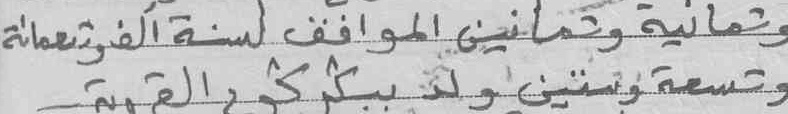 وثمانية وثمانين الموافق لسنة ألف وتسعمائة
وتسعة وستين ولد ببكركم القرية